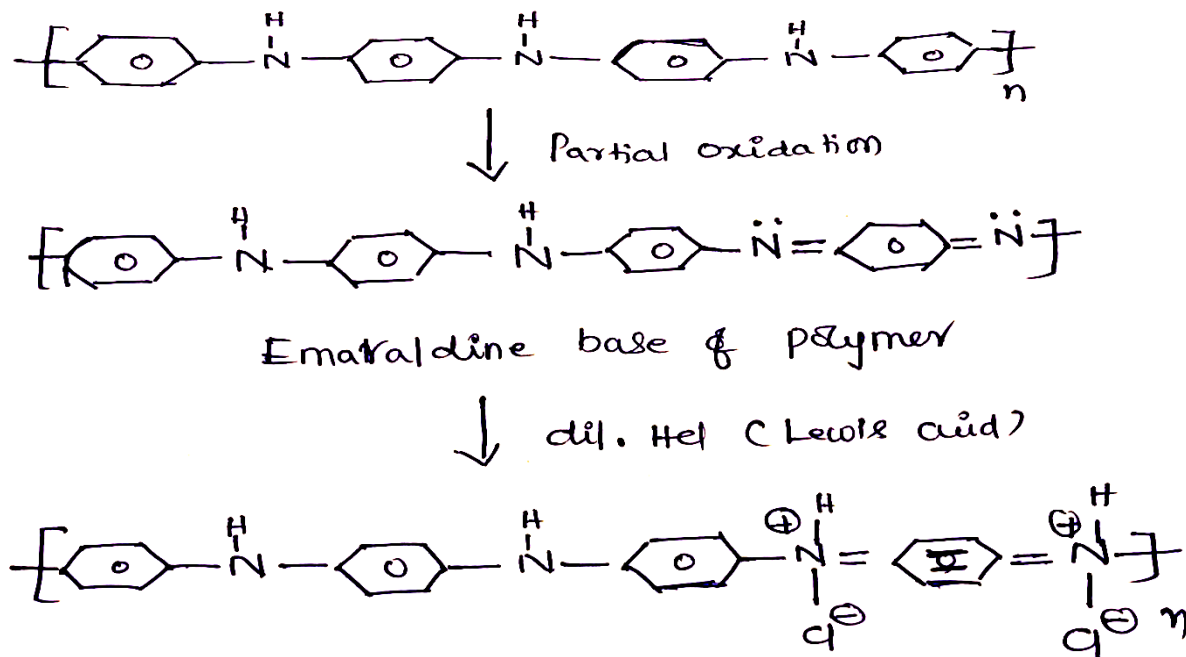 H H H
N N N
n
Partial oxidation
H H
N N N̈ = = N̈
Emaraldine base of polymer
dil. Hcl (Lewis acid)
H H ⊕ H ⊕ H
N N N = = N
Cl⊖ Cl⊖ n